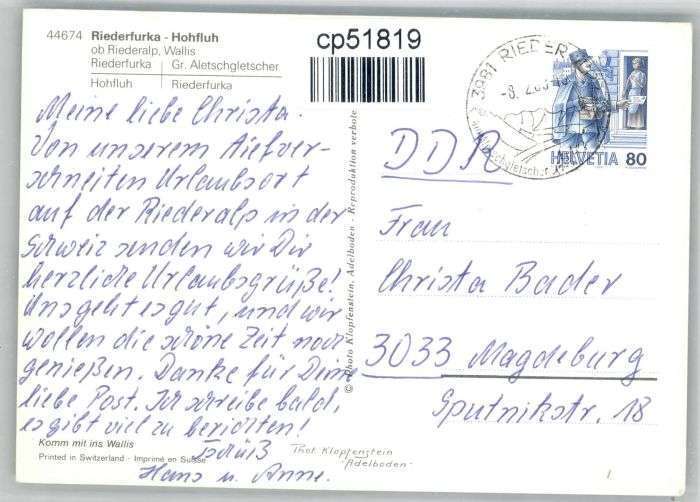 44674 Riederfurka - Hohfluh
ob Riederalp, Wallis
Riederfurka Gr. Aletschgletscher
Hohfluh Riederfurka
cp51819
3981 RIEDER
-8. 2.
Aletschgletscher
HELVETIA 80
Meine liebe Christa.
Von unserem tiefver-
schneiten Urlaubsort
auf der Riederalp in der
Schweiz senden wir Dir
herzliche Urlaubsgrüße!
Uns geht es gut, und wir
wollen die schöne Zeit noch
genießen. Danke für Deine
liebe Post. Ich schreibe bald,
es gibt viel zu berichten!
Tschüß
Hans u. Anne.
Komm mit ins Wallis
Printed in Switzerland - Imprimé en Suisse
© Photo Klopfenstein, Adelboden - Reproduktion verboten
Phot. Klopfenstein
Adelboden
DDR
Frau
Christa Bader
3033 Magdeburg
Sputnikstr. 18